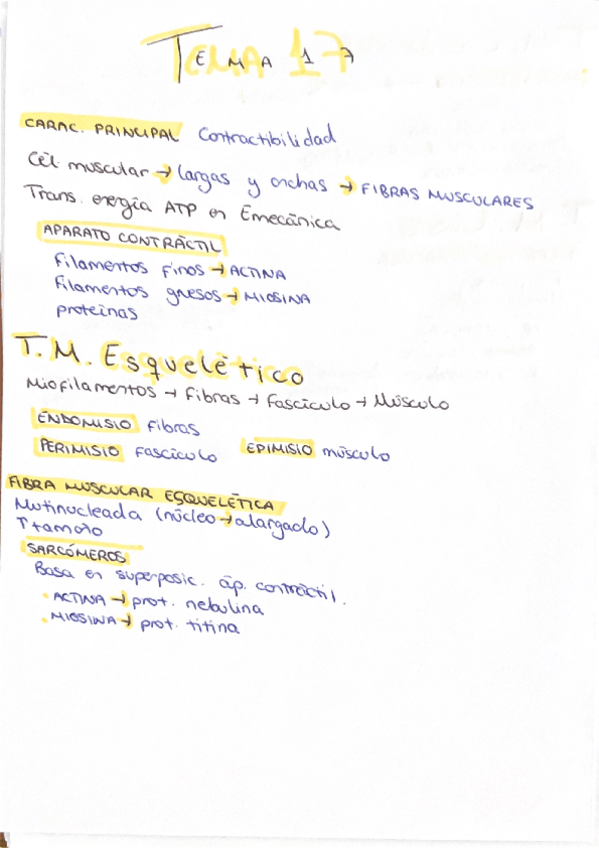 TEMA 17
CARAC. PRINCIPAL Contractibilidad
Cél. muscular → largas y anchas → FIBRAS MUSCULARES
Trans. energía ATP en Emecánica
APARATO CONTRÁCTIL
Filamentos finos → ACTINA
Filamentos gruesos → MIOSINA
proteínas
T.M. Esquelético
Miofilamentos → Fibras → Fascículo → Músculo
ENDOMISIO Fibras
PERIMISIO Fascículo EPIMISIO músculo
FIBRA MUSCULAR ESQUELÉTICA
Mutinucleada (núcleo → alargado)
↑ tamaño
SARCÓMEROS
Basa en superposic. ap. contráctil.
· ACTINA → prot. nebulina
· MIOSINA → prot. titina